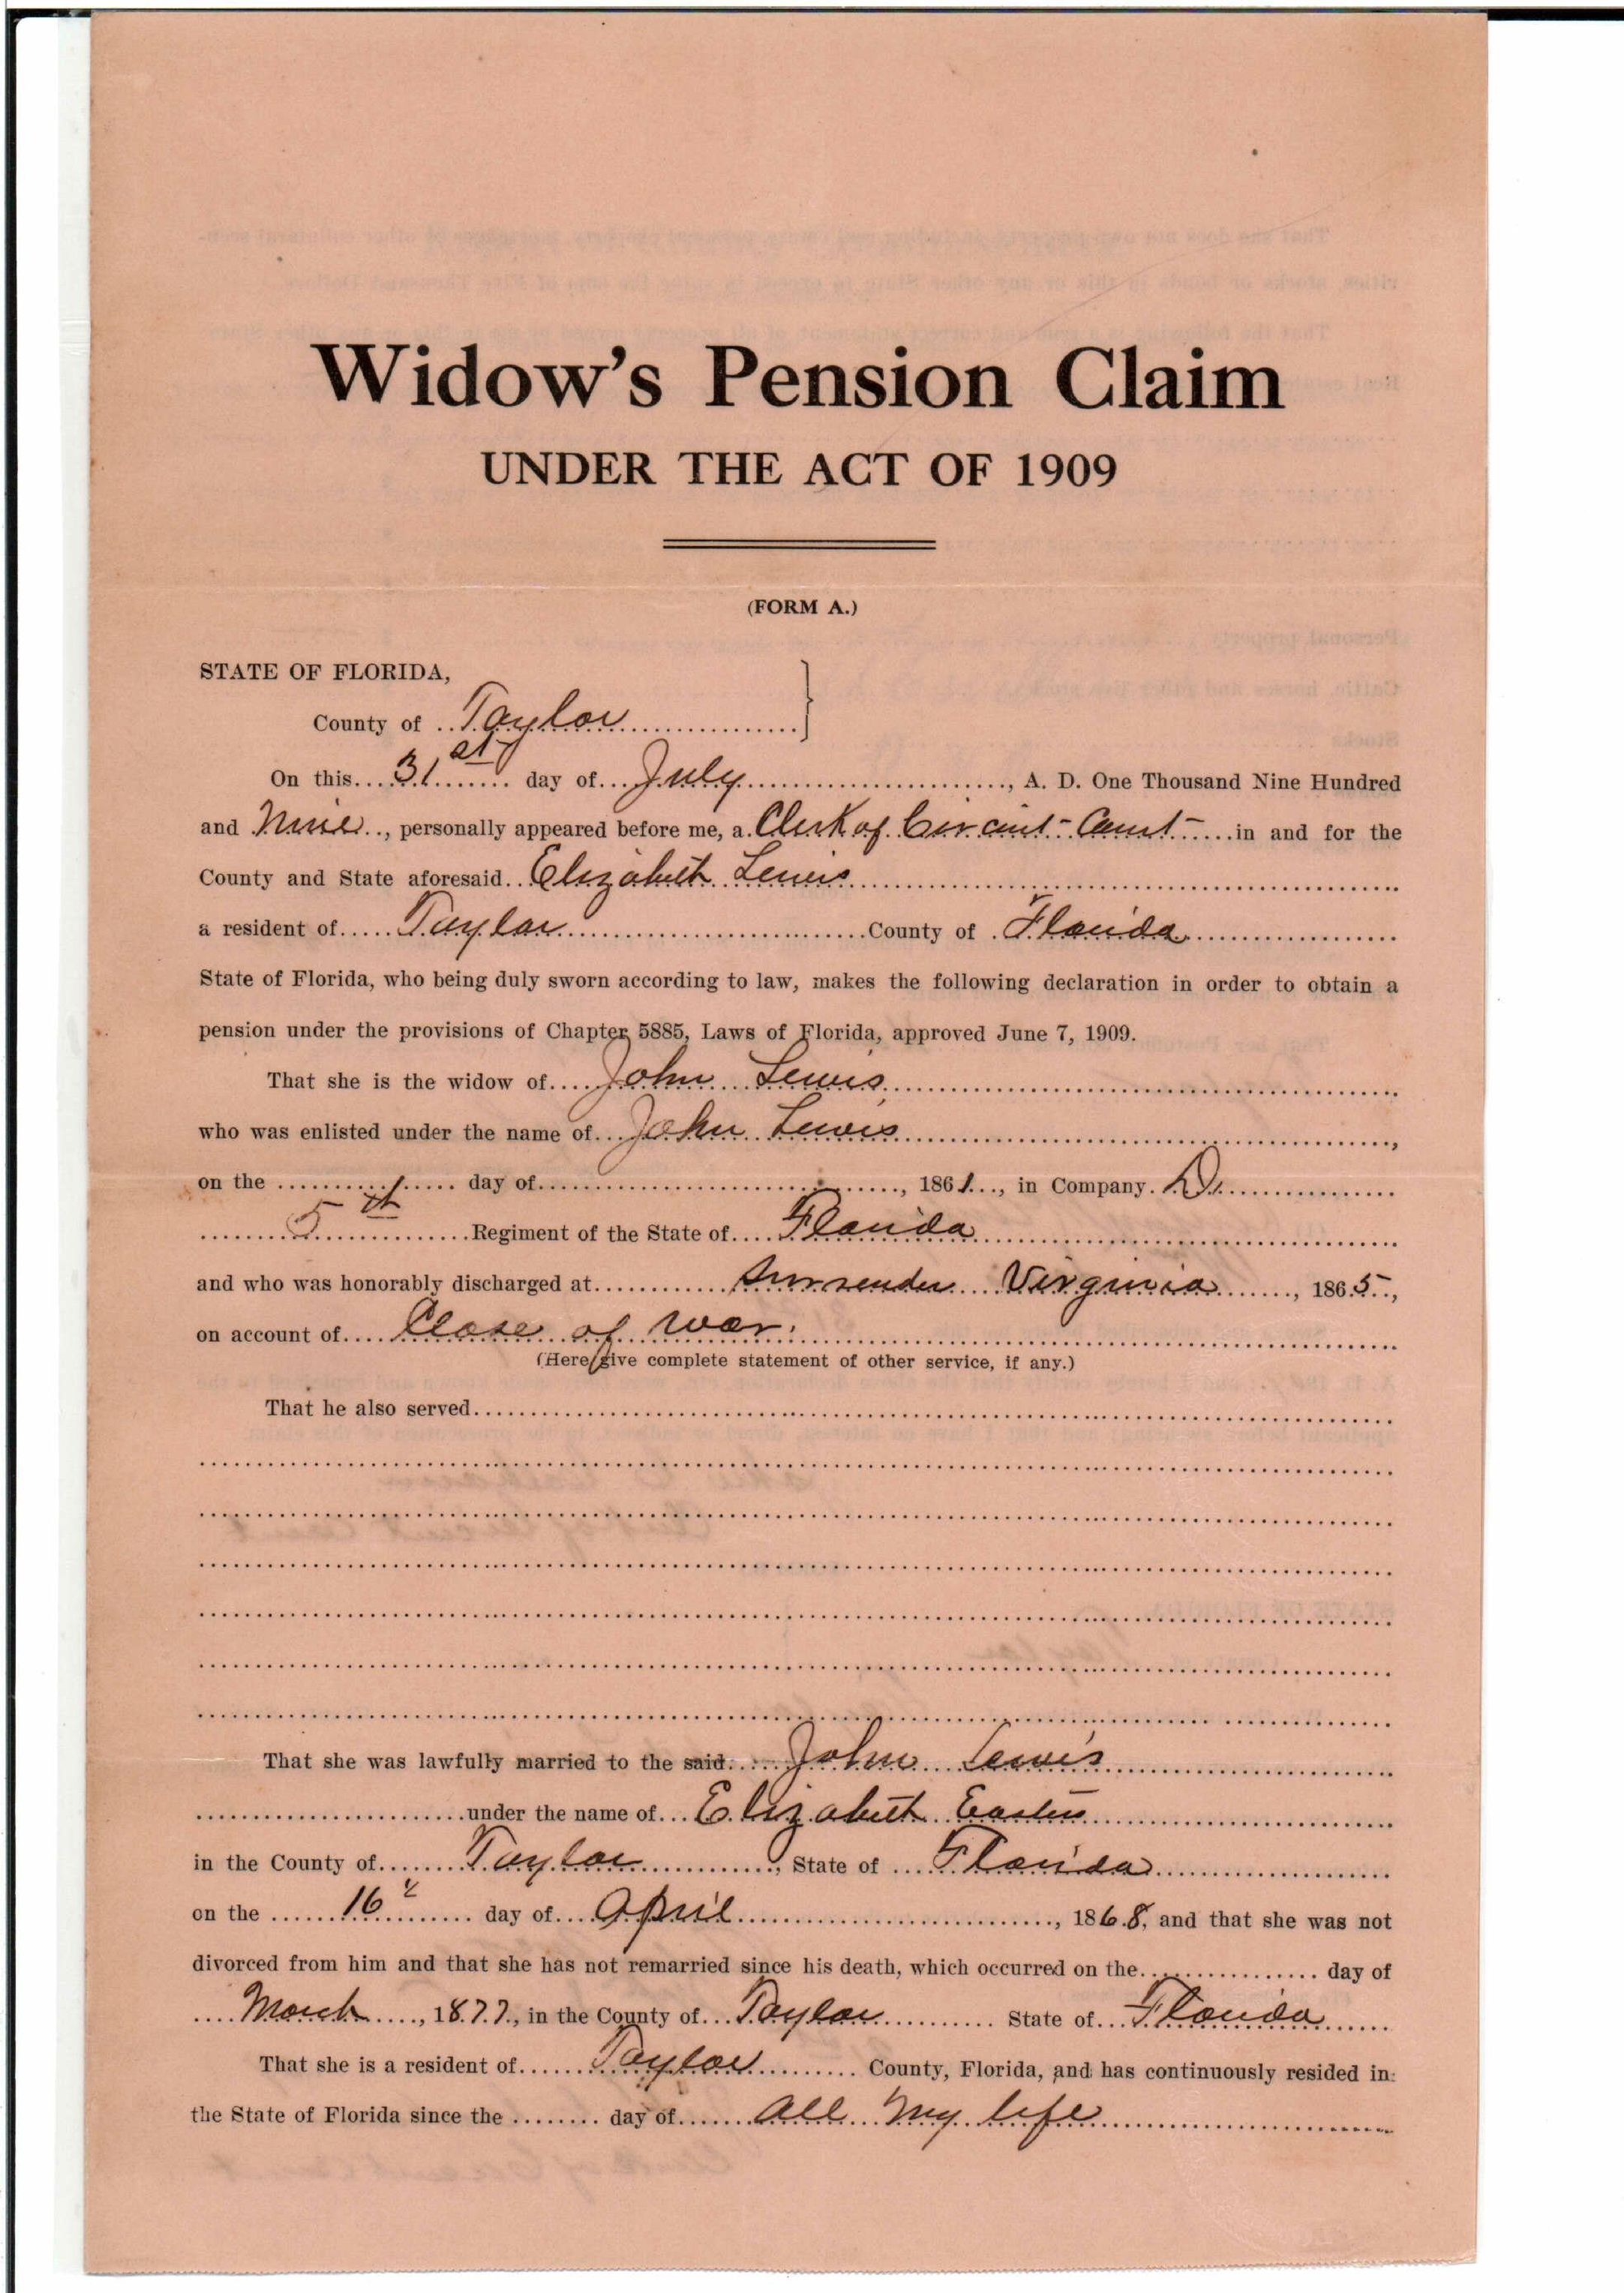 Widow's Pension Claim
UNDER THE ACT OF 1909
(FORM A.)
STATE OF FLORIDA,
County of Taylor
On this 31st day of July, A. D. One Thousand Nine Hundred
and Nine, personally appeared before me, a Clerk of Circuit Court in and for the
County and State aforesaid Elizabeth Lewis
a resident of Taylor County of Florida
State of Florida, who being duly sworn according to law, makes the following declaration in order to obtain a
pension under the provisions of Chapter 5885, Laws of Florida, approved June 7, 1909.
That she is the widow of John Lewis
who was enlisted under the name of John Lewis,
on the day of, 1861, in Company D.
5th Regiment of the State of Florida
and who was honorably discharged at Surrender Virginia, 1865,
on account of Close of War.
(Here give complete statement of other service, if any.)
That he also served
That she was lawfully married to the said John Lewis
under the name of Elizabeth
in the County of Taylor, State of Florida
on the 16 day of April, 1868, and that she was not
divorced from him and that she has not remarried since his death, which occurred on the day of
March, 1877, in the County of Taylor State of Florida
That she is a resident of Taylor County, Florida, and has continuously resided in
the State of Florida since the day of all my life